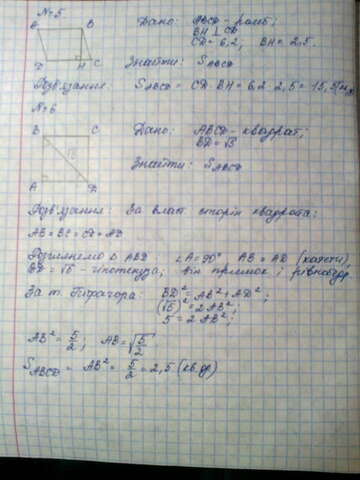 № 5
A B Дано: ABCD - ромб;
BH ⊥ CD
CD = 6,2, BH = 2,5.
D H C Знайти: S ABCD
Розв'язання: S ABCD = CD · BH = 6,2 · 2,5 = 15,5
№ 6
B C Дано: ABCD - квадрат;
BD = √5
√5 Знайти: S ABCD
A D
Розв'язання: За власт. сторін квадрата:
AB = BC = CD = AD
Розглянемо Δ ABD: ∠A = 90° AB = AD (катети),
BD = √5 - гіпотенуза, він прямок. і рівнобедр.
За т. Піфагора: BD² = AB² + AD²;
(√5)² = 2AB²
5 = 2AB²;
AB² = 5/2; AB = √5/2
S ABCD = AB² = 5/2 = 2,5 (кв.од)